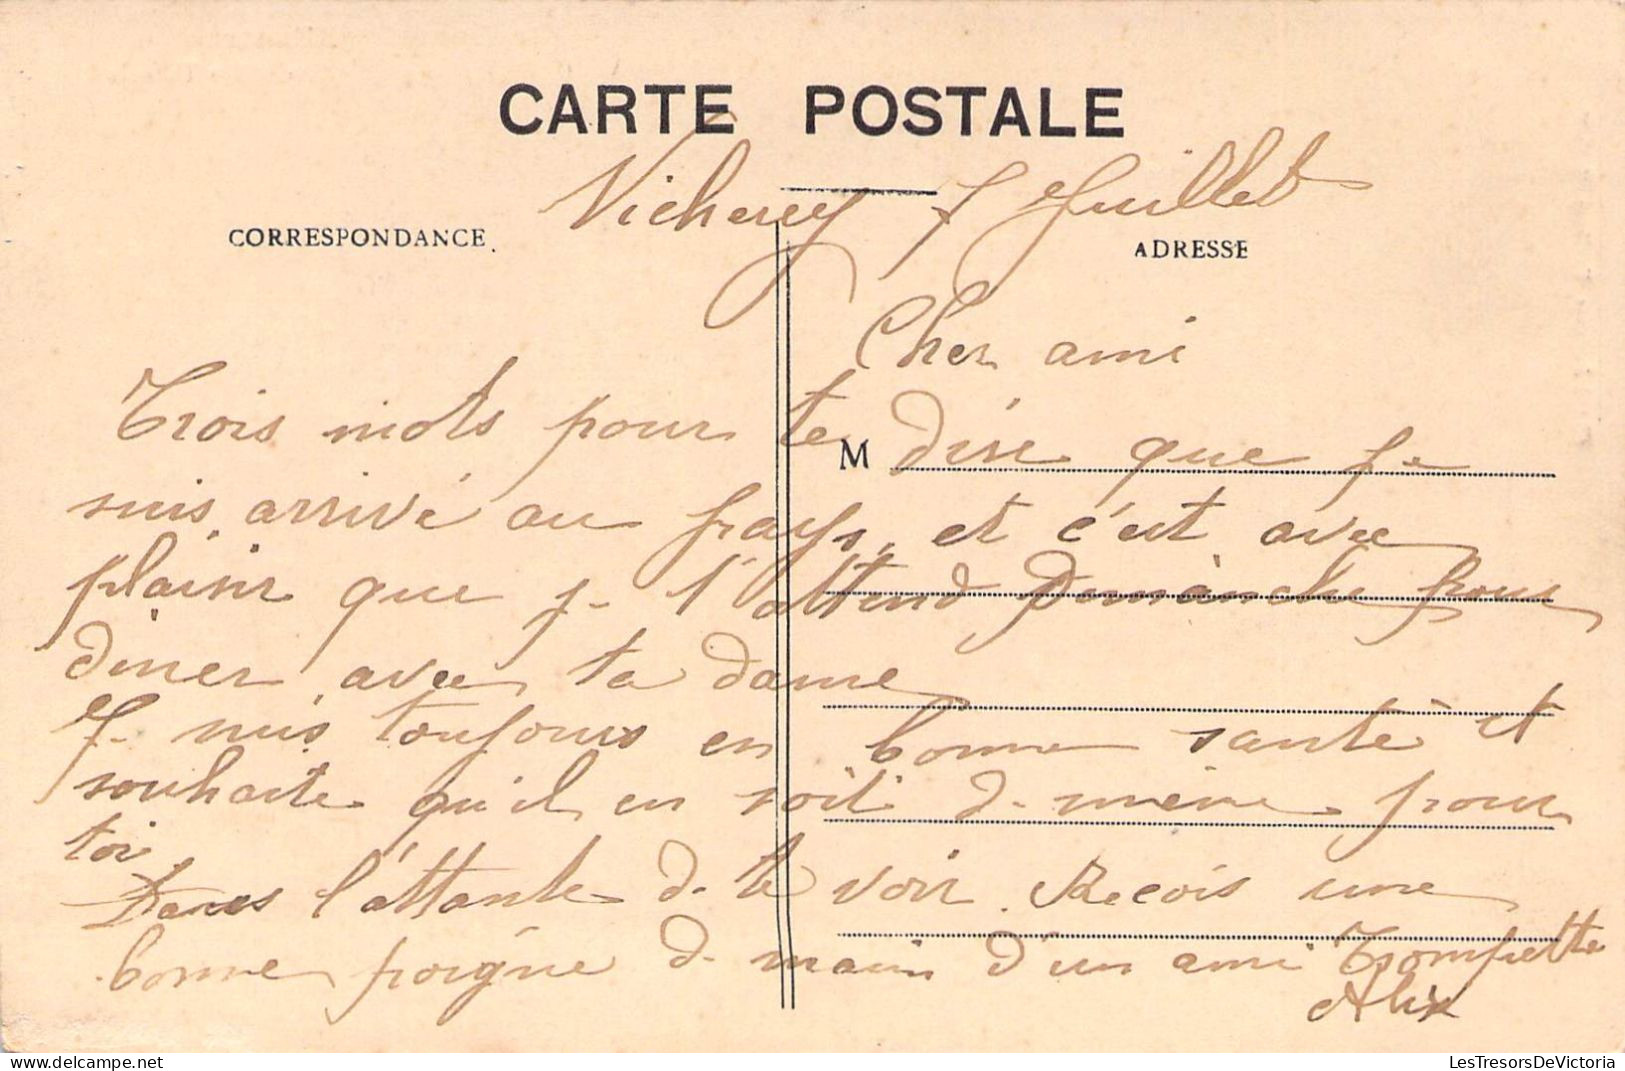 CARTE POSTALE
Vicherey 7 Juillet
CORRESPONDANCE
ADRESSE
Cher ami
Trois mots pour te dire que je
M
suis arrivé au pays, et c'est avec
plaisir que je t'attend Dimanche pour
diner avec ta dame
Je suis toujours en bonne santé et
souhaite qu'il en soit de même pour
toi
Dans l'attente de te voir. Reçois une
bonne poigné de main d'un ami Trompette
Alix
LesTresorsDeVictoria
www.delcampe.net